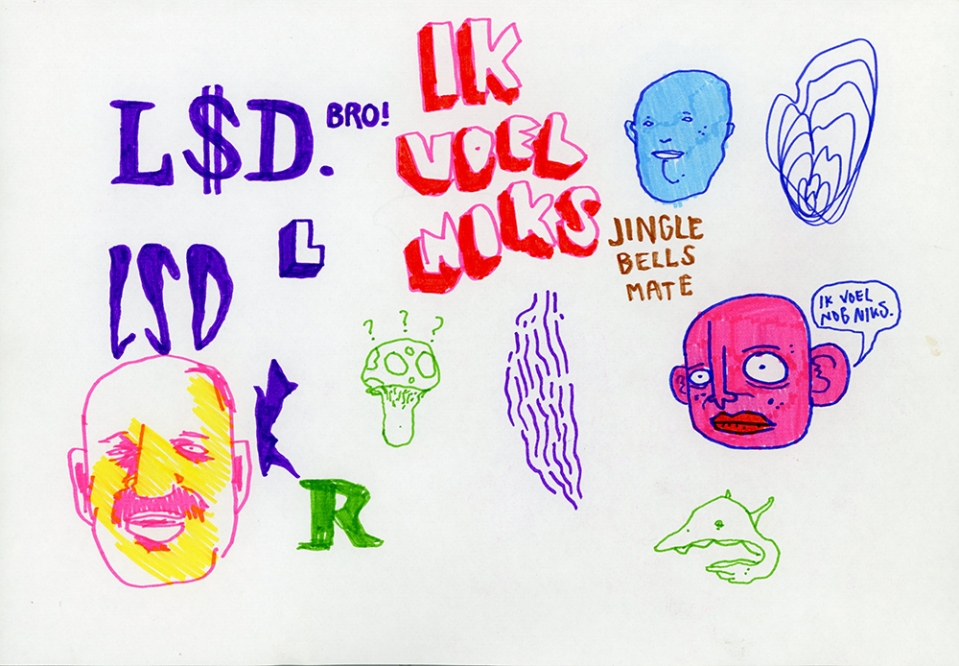 L$D.
BRO!
IK
VOEL
NIKS
JINGLE
BELLS
MATE
L
LSD
? ? ?
IK VOEL
NOG NIKS.
K
R